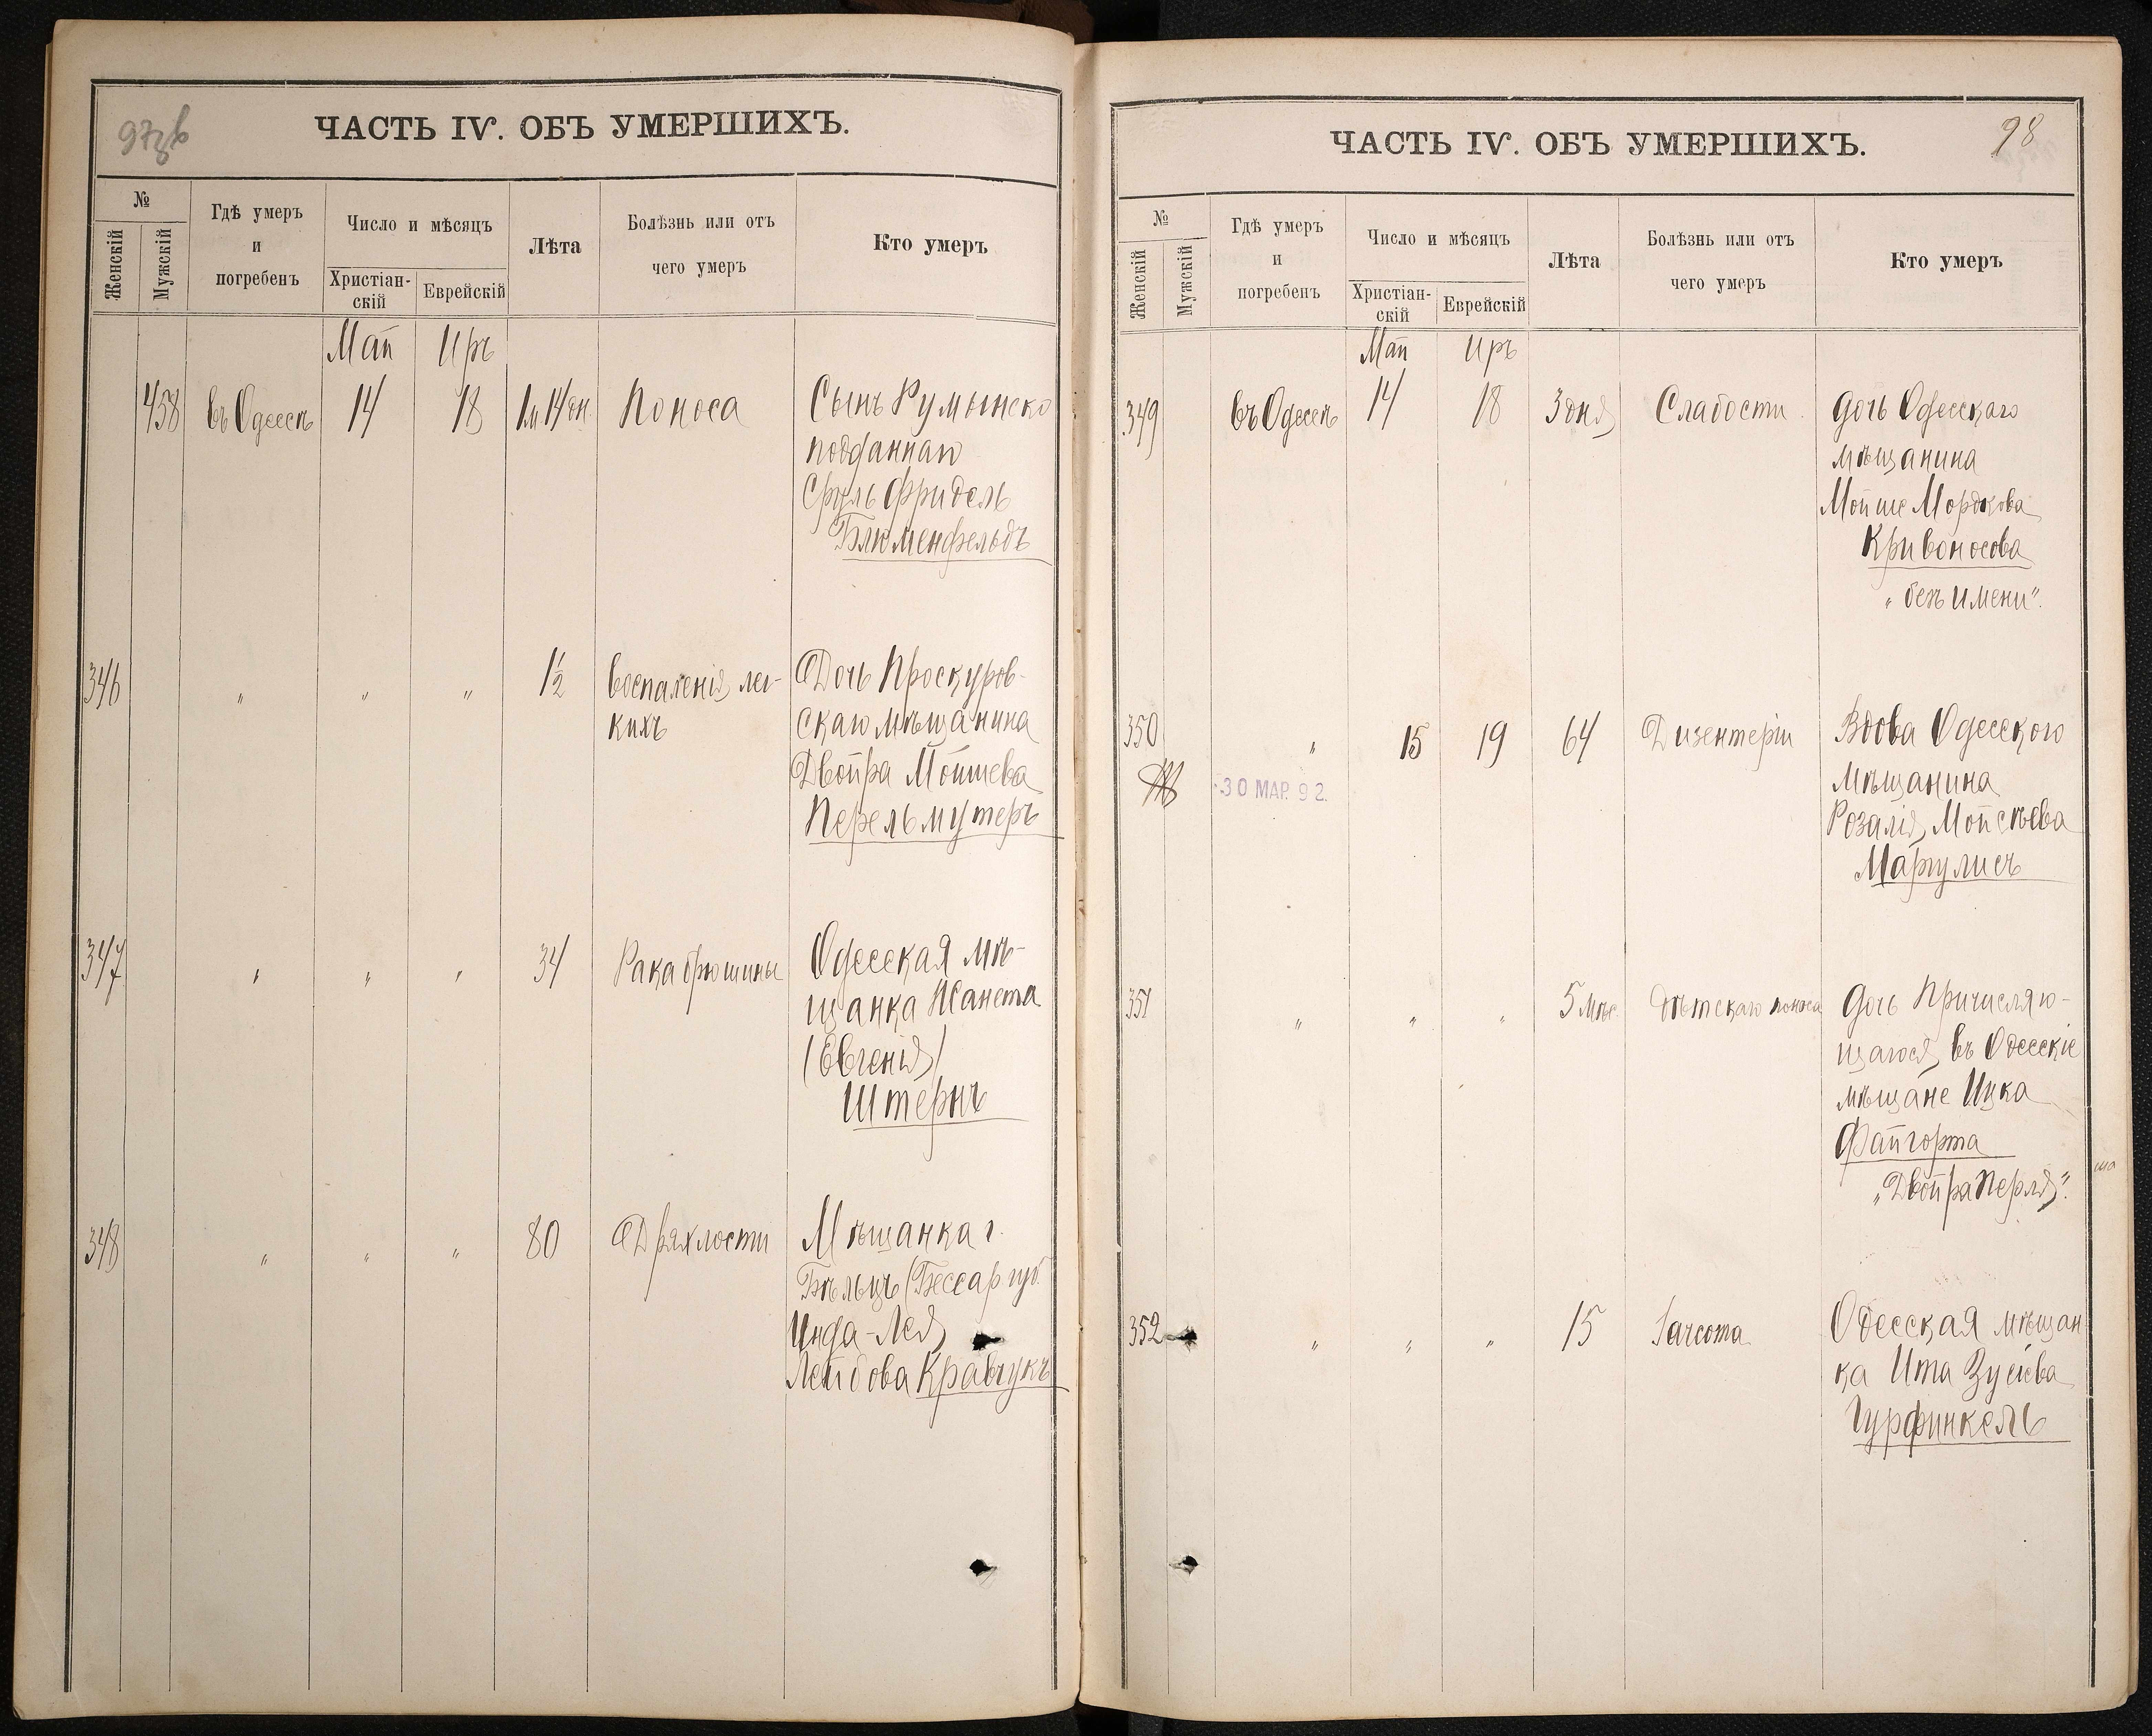 97зв
ЧАСТЬ IV. ОБЪ УМЕРШИХЪ.
№
Женскій
Мужскій
Гдѣ умеръ
и
погребенъ
Число и мѣсяцъ
Христіан-
скій
Еврейскій
Лѣта
Болѣзнь или отъ
чего умеръ
Кто умеръ
Май Иръ
458 въ Одессѣ 14 18 1 м 14 дн. Поноса Сынъ Румынско
подданнаго
Сруль Фридель
Блюменфельдъ
346 " " " 1½ воспаленія лег- Дочь Проскуров-
кихъ скаго мѣщанина
Двойра Мойшева
Перельмутеръ
347 " " " 34 Рака брюшины Одесская мѣ-
щанка Жанета
(Евгенія)
Штернъ
348 " " " 80 Дряхлости Мѣщанка г.
Бѣльцъ (Бессар губ.
Инда-Лея
Лейбова Кравчукъ
98
ЧАСТЬ IV. ОБЪ УМЕРШИХЪ.
№
Женскій
Мужскій
Гдѣ умеръ
и
погребенъ
Число и мѣсяцъ
Христіан-
скій
Еврейскій
Лѣта
Болѣзнь или отъ
чего умеръ
Кто умеръ
Май Иръ
349 въ Одессѣ 14 18 3 дня Слабости дочь Одесскаго
мѣщанина
Мойше Мордкова
Кривоносова
"безъ имени".
350 " 15 19 64 Дизентеріи Вдова Одесского
30 МАР. 92. мѣщанина
Розалія Мойсѣева
Маргулисъ
351 " " " 5 мѣс. дѣтскаго поноса дочь Причисляю-
щагося въ Одесскіе
мѣщане Ицка
Файгорта
"Двойра Перля".
352 " " " 15 Чахотка Одесская мѣщан
ка Ита Зусева
Гурфинкель